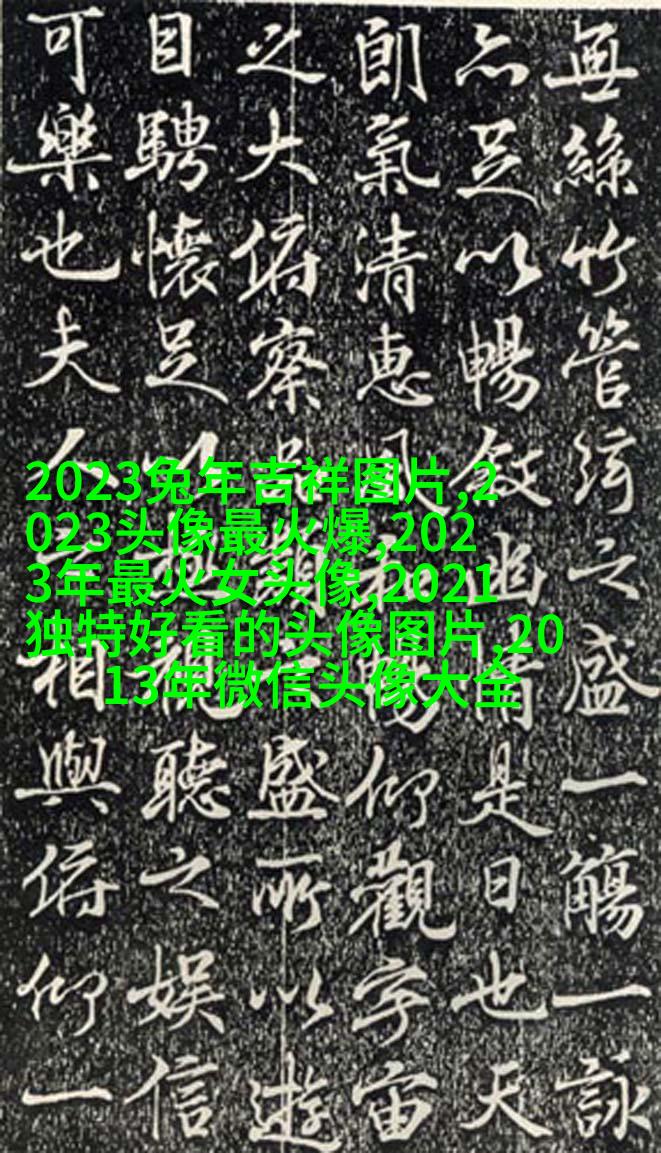 無絲竹管絃之盛一觴一詠
亦足以暢敘幽情是日也天
朗氣清惠風和暢仰觀宇宙
之大俯察品類之盛所以遊
目騁懷足以極視聽之娛信
可樂也夫人之相與俯仰一
2023兔年吉祥图片,2
023头像最火爆,202
3年最火女头像,2021
独特好看的头像图片,20
13年微信头像大全